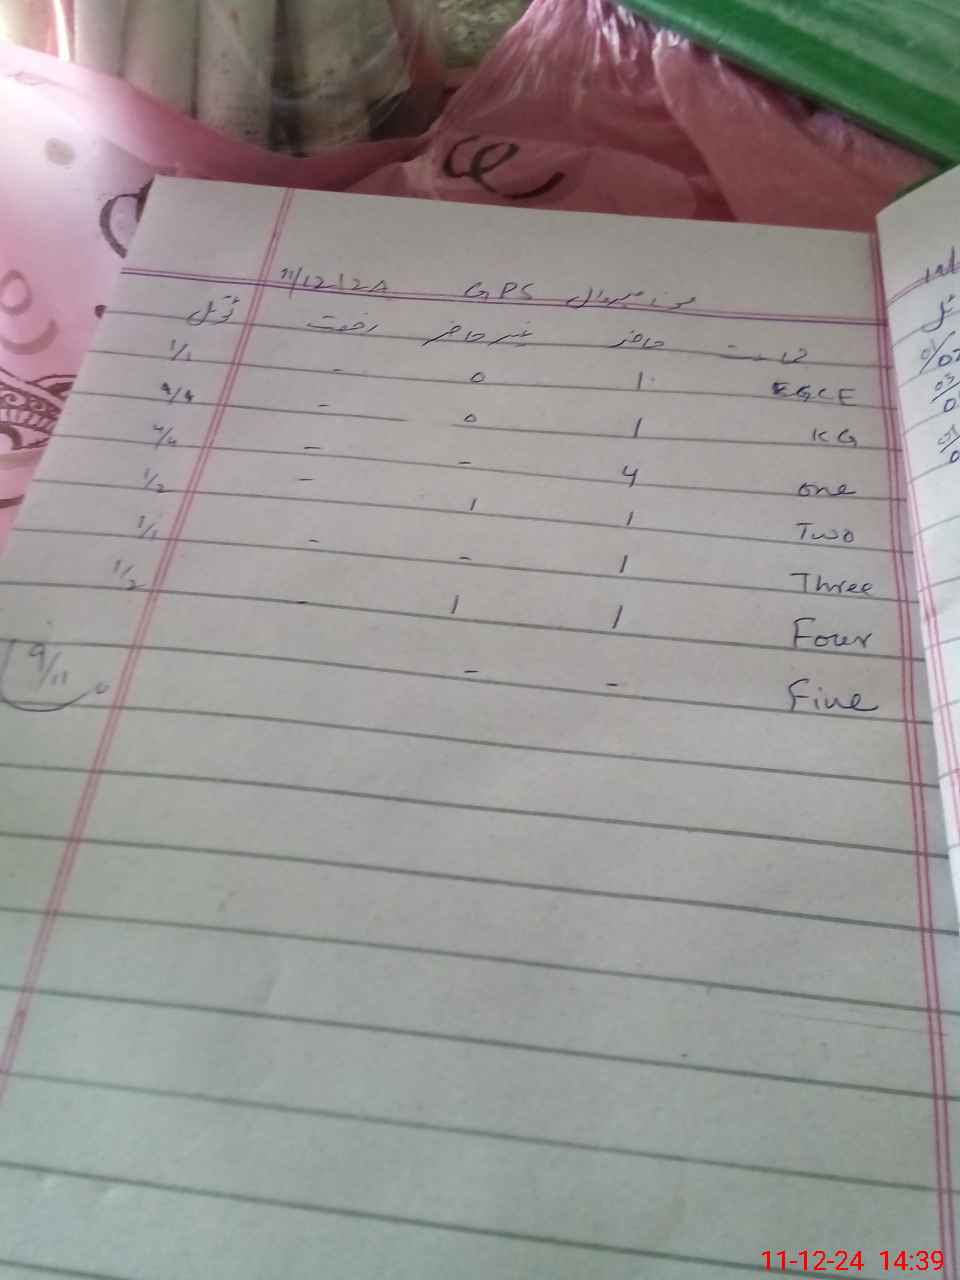 11/12/24 GPS
جماعت حاضر غیر حاضر رخصت ٹوٹل
ECCE 1 0 - 1/1
KG 1 0 -
one 4 - - 4/4
Two 1 1 - 1/2
Three 1 - - 1/1
Four 1 1 - 1/2
Five - -
9/11
11-12-24 14:39